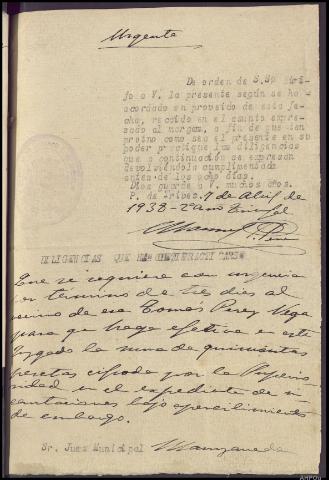 Urgente
De orden de S.Sª diri-
jo a V. la presente según se ha
acordado en proveido de esta fe-
cha, recaido en el asunto expre-
sado al margen, a fin de que tan
pronto como sea el presente en su
poder practique las diligencias
que a continuación se expresan
devolviéndola cumplimentada
antes de los ocho dias.
Dios guarde a V. muchos años.
P. de Trives. 9 de Abril de
1938-2º año Triunfal
DILIGENCIAS QUE HAN DE PRACTICARSE
Que se requiera con urgencia
en termino de tres dias al
vecino de esa Tomás Perez Vega
para que haga efectiva en este
Juzgado la suma de quinientas
pesetas cifrada por la Superio-
ridad en el expediente de in-
cautaciones bajo apercibimiento
de embargo.
Sr. Juez Municipal Manzaneda
AHPOU